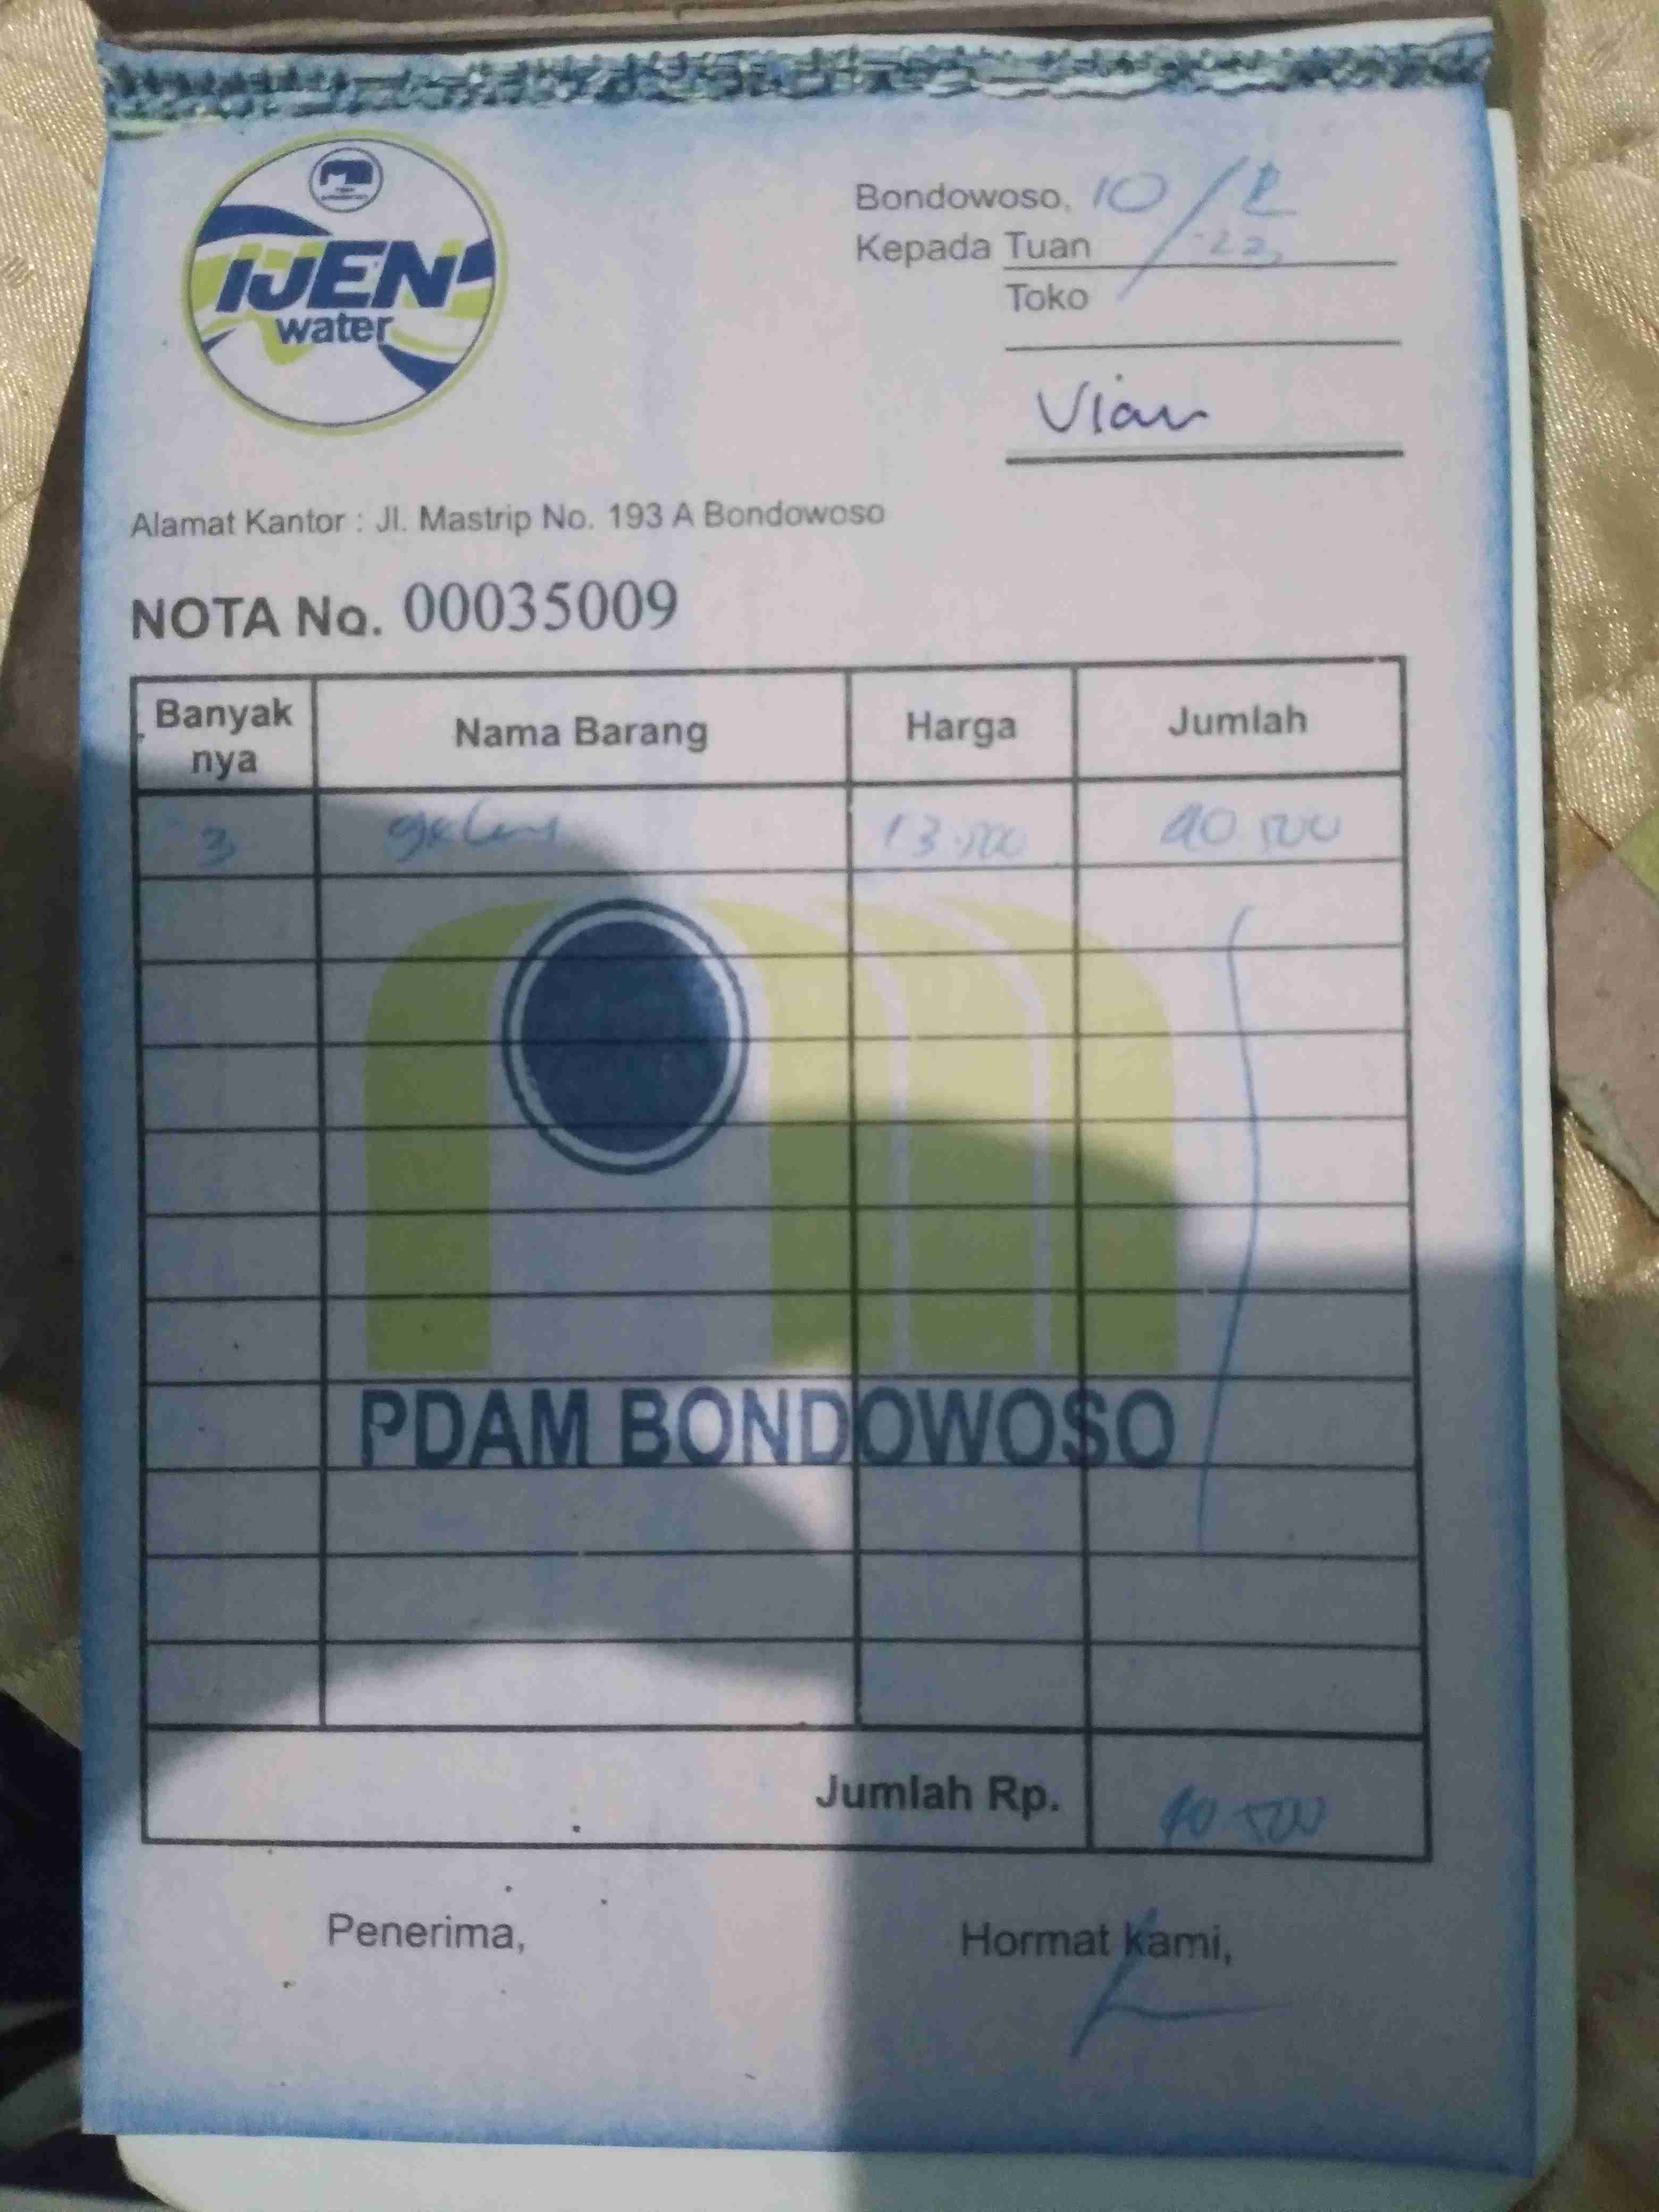 IJEN
water
Bondowoso, 10/2
Kepada Tuan
Toko
Vian
Alamat Kantor : Jl. Mastrip No. 193 A Bondowoso
NOTA No. 00035009
Banyak nya Nama Barang Harga Jumlah
3 galon 13.500 40.500
PDAM BONDOWOSO
Jumlah Rp. 40.500
Penerima, Hormat Kami,